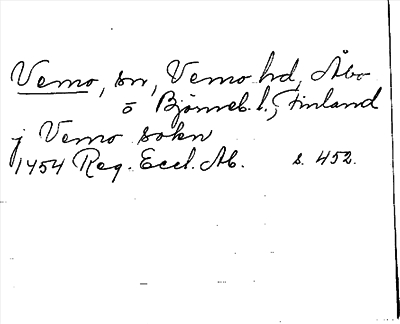 Vemo, sn, Vemo hd, Åbo
o Björneb. l., Finland
j Vemo sokn
1454 Reg. Eccl. Ab. s. 452.